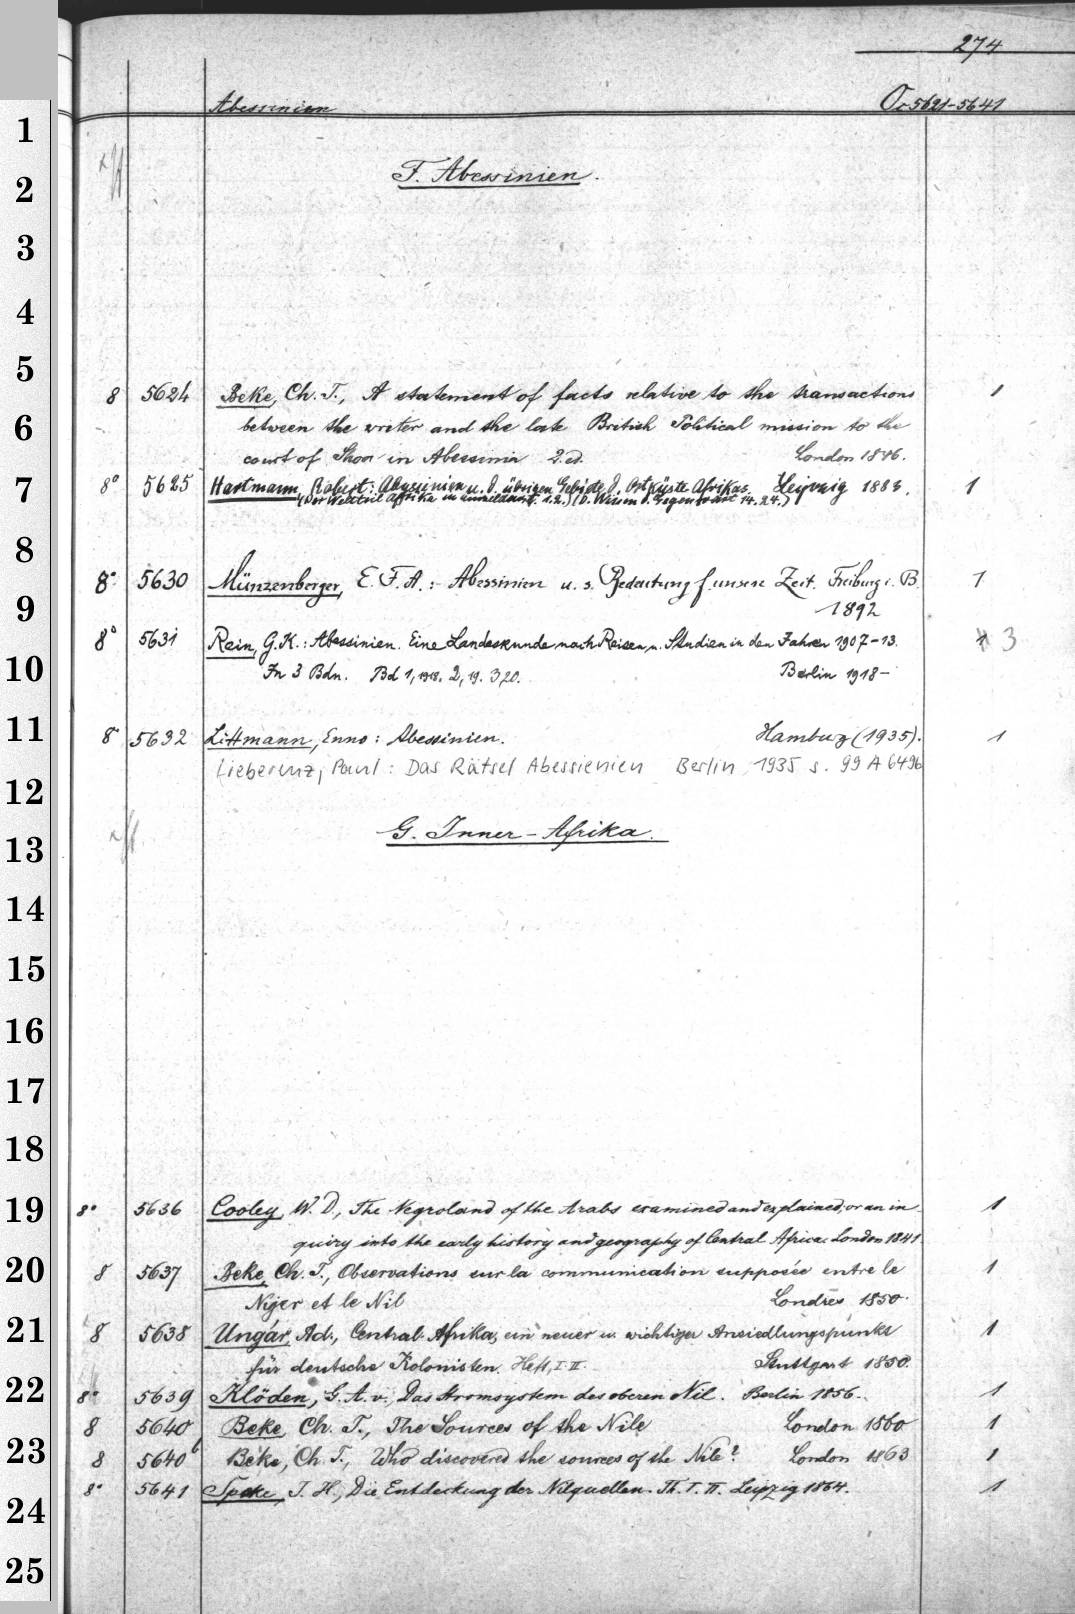 274
Abessinien Oc 5621-5641
F. Abessinien.
8 5624 Beke, Ch. T., A statement of facts relative to the transactions 1
between the writer and the late British Political mission to the
court of Shoa in Abessinia 2. ed. London 1846.
8° 5625 Hartmann, Robert: Abyssinien u. d. übrigen Gebiete d. Ostküste Afrikas. Leipzig 1883. 1
(Der Weltteil Afrika in Einzeldarst. 1.2.) (D. Wissen d. Gegenwart 14. 24.)
8° 5630 Münzenberger, E. F. A.: Abessinien u. s. Bedeutung f. unsere Zeit. Freiburg i. B. 1
1892
8° 5631 Rein, G. K.: Abessinien. Eine Landeskunde nach Reisen u. Studien in den Jahren 1907-13. 3
In 3 Bdn. Bd 1, 1918. 2, 19. 3, 20. Berlin 1918-
8° 5632 Littmann, Enno: Abessinien. Hamburg (1935). 1
Lieberenz, Paul: Das Rätsel Abessienien Berlin 1935 s. 99 A 6496
G. Inner-Afrika.
8° 5636 Cooley, W. D., The Negroland of the Arabs examined and explained; or an in 1
quiry into the early history and geography of Central Africa. London 1841
8 5637 Beke, Ch. T., Observations sur la communication supposée entre le 1
Nijer et le Nil Londres 1850.
8 5638 Ungár, Ad., Central-Afrika, ein neuer u. wichtiger Ansiedlungspunkt 1
für deutsche Kolonisten. Heft, I-II. Stuttgart 1850.
8° 5639 Klöden, G. A. v., Das Stromsystem des oberen Nil. Berlin 1856. 1
8 5640 Beke, Ch. T., The Sources of the Nile London 1860 1
8 5640b Beke, Ch. T., Who discovered the sources of the Nile? London 1863 1
8° 5641 Speke, J. H., Die Entdeckung der Nilquellen. Th. I. II. Leipzig 1864. 1
1
2
3
4
5
6
7
8
9
10
11
12
13
14
15
16
17
18
19
20
21
22
23
24
25